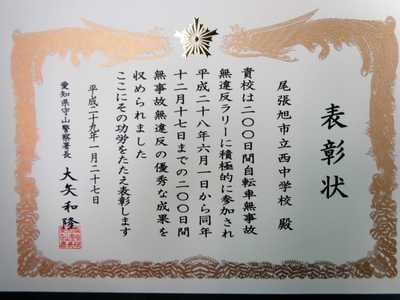 表彰状
尾張旭市立西中学校 殿
貴校は二〇〇日間自転車無事故
無違反ラリーに積極的に参加され
平成二十八年六月一日から同年
十二月十七日までの二〇〇日間
無事故無違反の優秀な成果を
収められました
ここにその功労をたたえ表彰します
平成二十九年一月二十七日
愛知県守山警察署長 大矢和隆